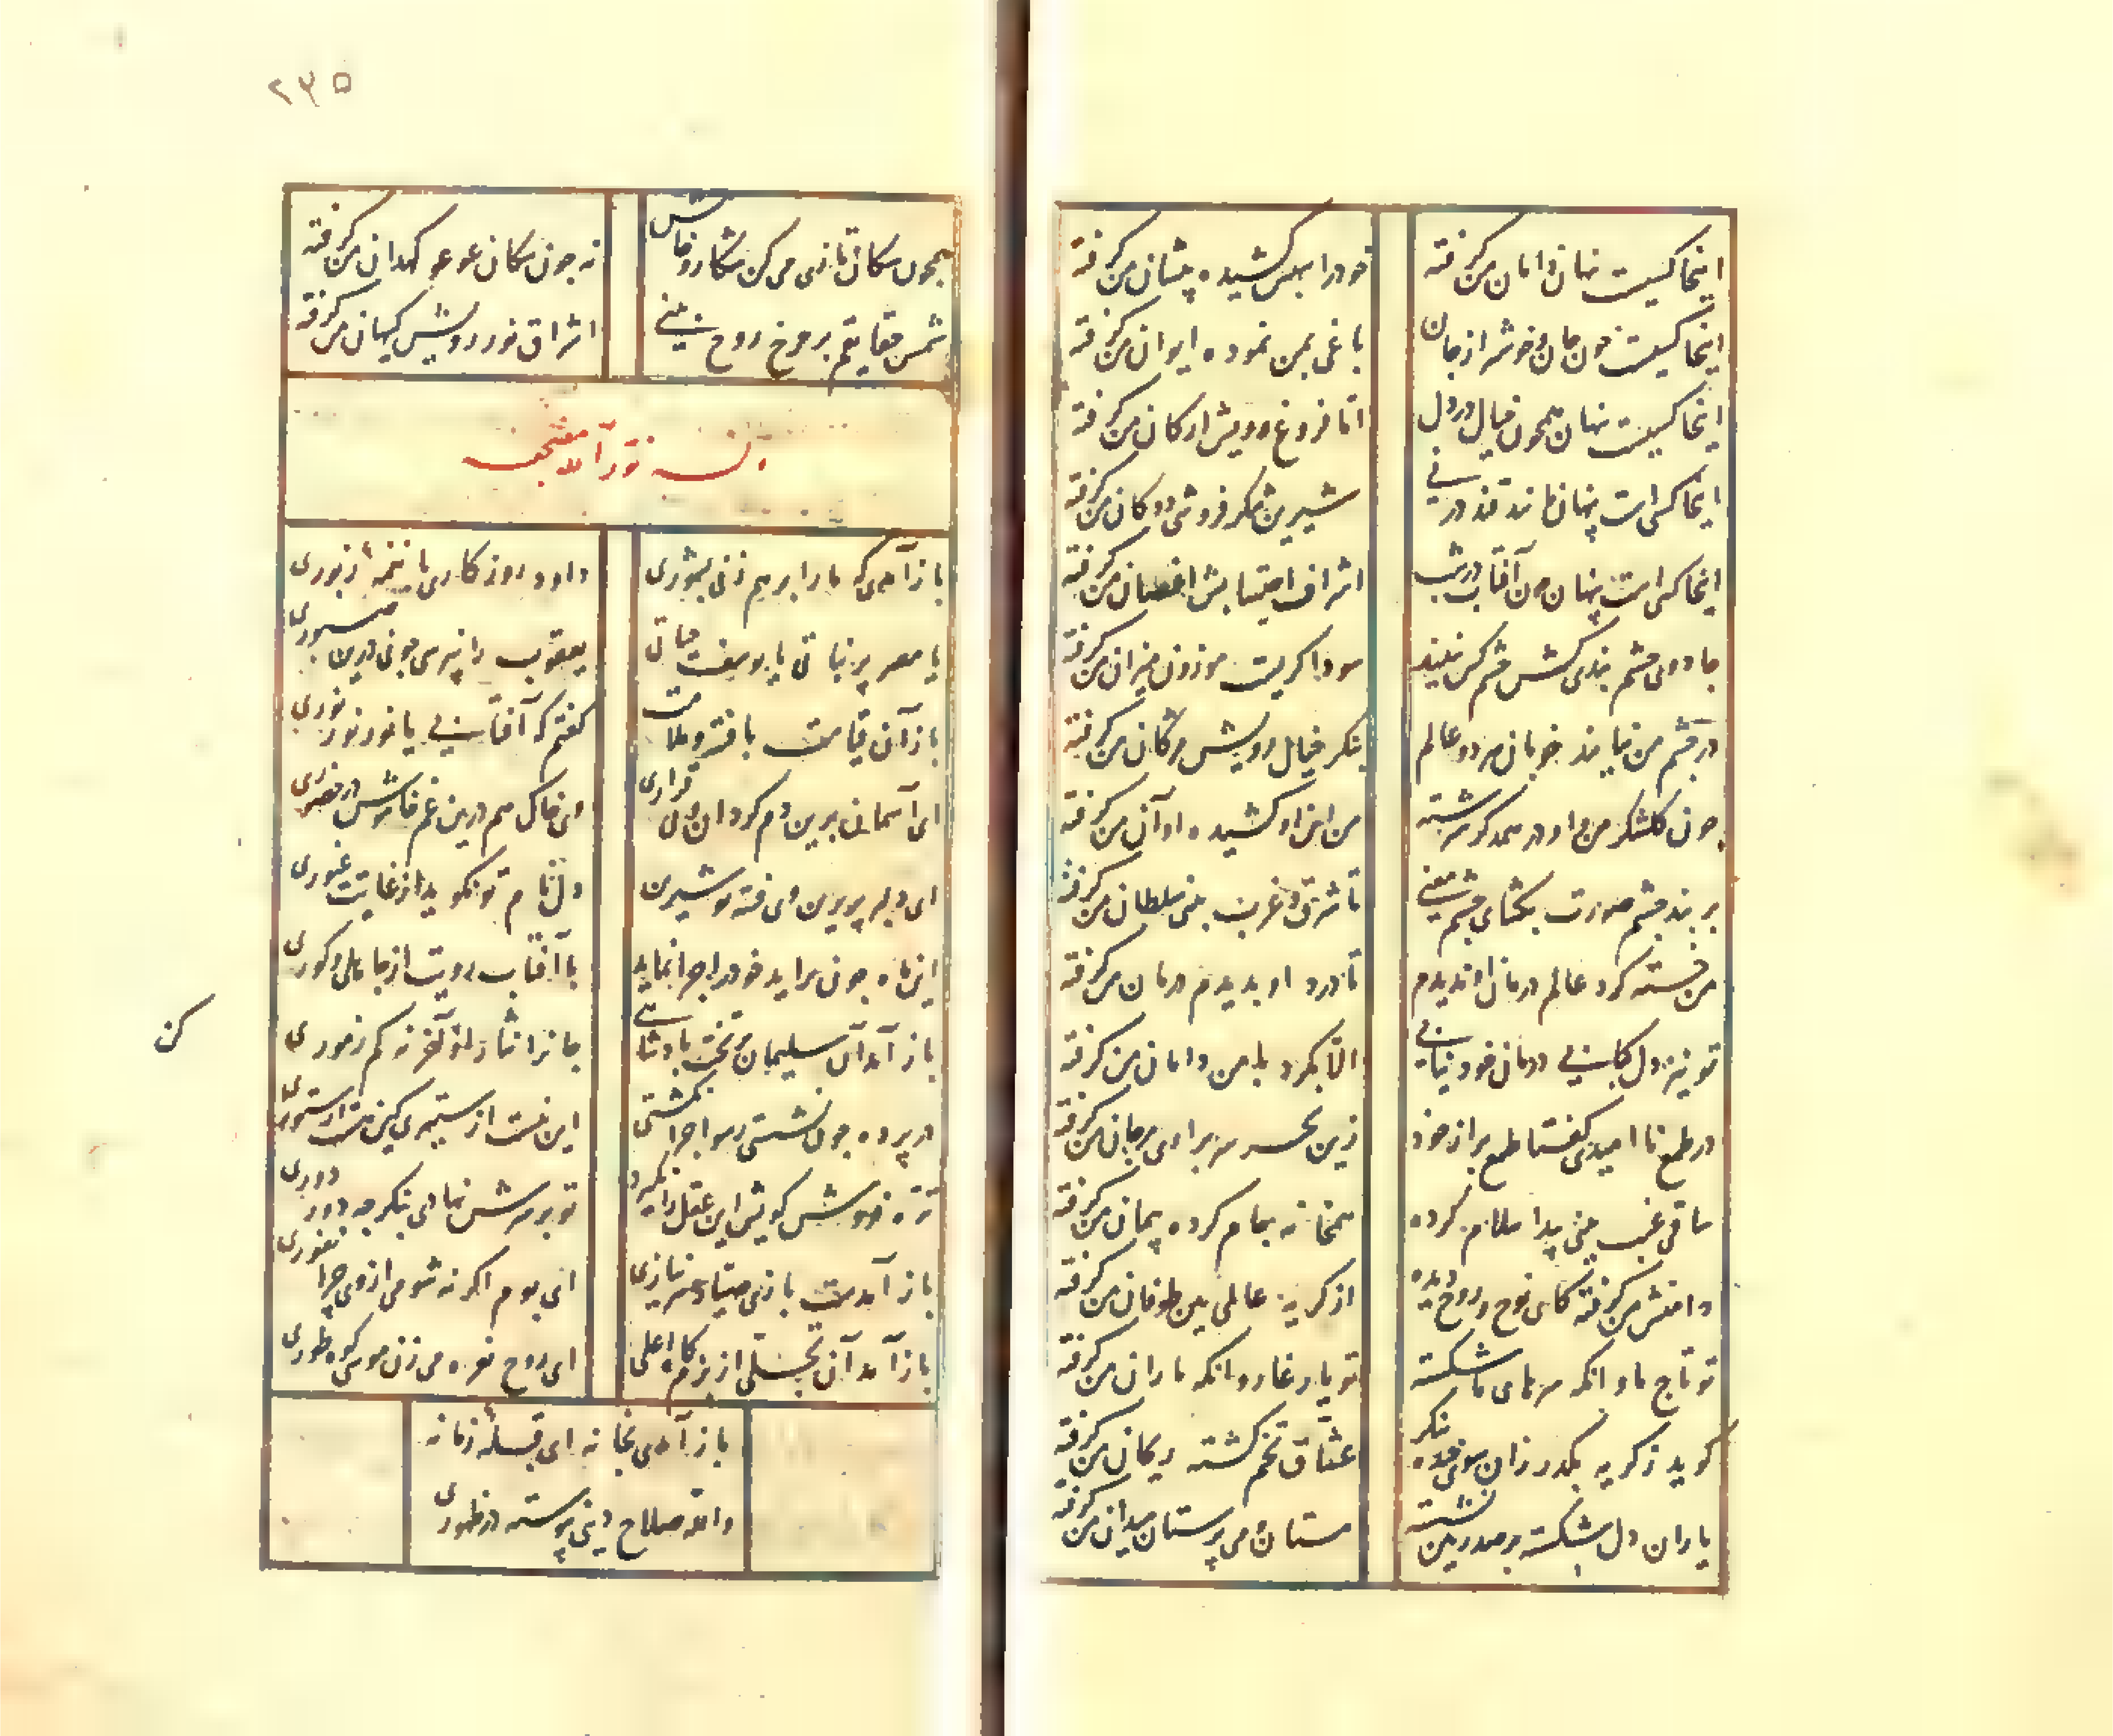 اینجا کسیست پنهان دامان من گرفته
خود را سپس کشیده پیشان من گرفته
اینجا کسیست پنهان چون جان و خوشتر از جان
باغی بمن نموده ایوان من گرفته
اینجا کسیست پنهان همچون خیال در دل
اما فروغ رویش ارکان من گرفته
اینجا کسی است پنهان مانند قند در نی
شیرین شکر فروشی دوکان من گرفته
اینجا کسی است پنهان چون آفتاب در شب
جادوی چشم بندی کش چشم کس نبیند
سوداگریست موزون میزان من گرفته
در چشم من نیاید خوبان هر دو عالم
بنگر خیال رویش مژگان من گرفته
چون گلشکر من و او در همدگر سرشته
من خوی او کشیده او آن من گرفته
بربند چشم صورت بگشای چشم معنی
تا شرق و غرب بینی سلطان من گرفته
من خسته گرد عالم درمان او ندیدم
تا درد او بدیدم درمان من گرفته
تو نیز دل کبابی درمان خود نیابی
الا بگرد یا من دامان من گرفته
در طمع ناامیدی گفتا طمع بر از خود
زین بحر سر برآری مرجان من گرفته
ساقی غیب بینی پیدا سلام کرده
میخانه بجام کرده پیمان من گرفته
دامنش من گرفته کای نوح روح دیده
از گریه عالمی بین طوفان من گرفته
تو تاج ما و آنگه سرهای ما شکسته
تو یار غار و آنگه یاران من گرفته
گوید ز گریه بگذر زان سوی گریه بنگر
عشاق تخم کشته ریحان من گرفته
یاران دل شکسته بر صدر بین نشسته
مستان و می پرستان میدان من گرفته
۲۳۵
همچون سکان تازی می کن شکار خامش
نه چون سکان عوعو کهدان من گرفته
شمس حقایقم بر چرخ روح بینی
اشراق نور رویش کیهان من گرفته
باز آمدی که ما را بر هم زنی بشوری
داود روزگاری با نغمهٔ زبوری
یا مصر پر نباتی یا یوسف حیاتی
یعقوب را نپرسی چونی درین صبوری
باز آن قیامت با فتنه و ملامت
گفتم که آفتابی یا نور نور نوری
ای آسمان برین دم گردان و بی قراری
وی خاک هم درین غم خاموش و در حضوری
ای دلبر پریرین وی فتنه تو شیرین
دل نام تو نگوید از غایت غیوری
این ماه چون برآید خود را چرا نماید
با آفتاب رویت از جاهلی و کوری
باز آمد آن سلیمان بر تخت پادشاهی
جان را نثار او کن آخر نه کم ز موری
در پرده چون نشستی رسوا چرا نگشتی
این نیست از ستیری این نیست از ستوری
تره فروش کویش این عقل را نگیرد
تو بر سرش نهادی بنگر چه دور دوری
باز آمدست بازی صیاد هر نیازی
ای بوم اگر نه شومی از وی چرا نفوری
باز آمد آن تجلی از بزم گاه اعلی
ای روح نعره می زن موسی و کوه طوری
باز آمدی بخانه ای قبلهٔ زمانه
والله صلاح دینی پیوسته در ظهوری
کن